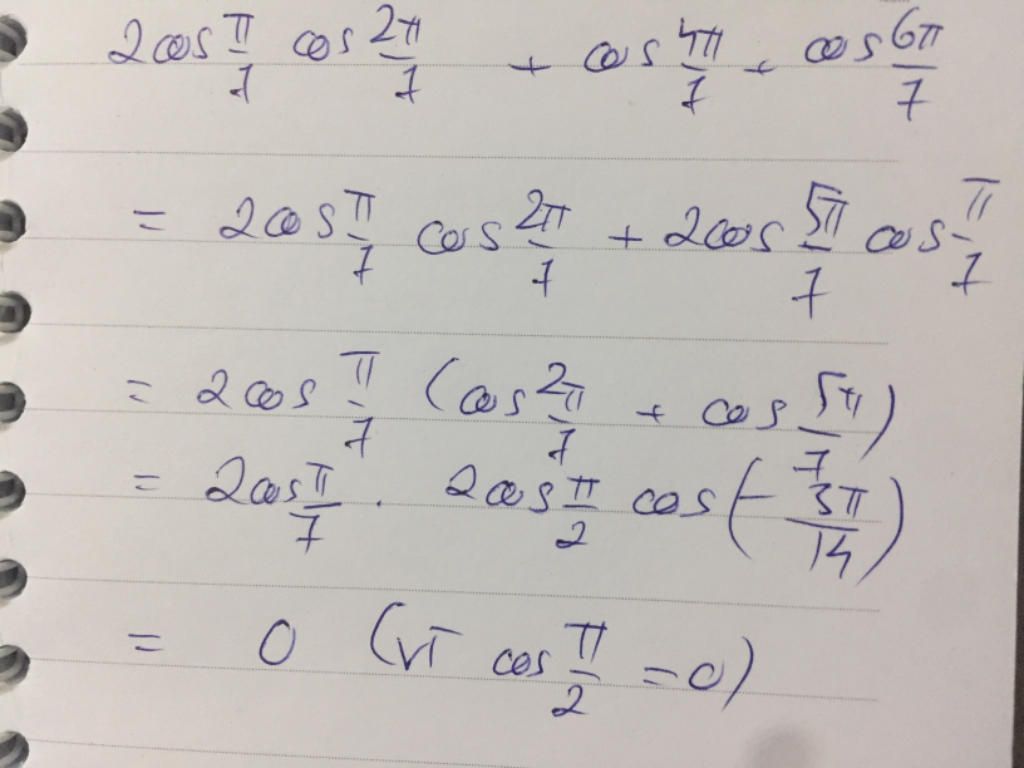 2cos π/7 cos 2π/7 + cos 4π/7 + cos 6π/7
= 2cos π/7 cos 2π/7 + 2cos 5π/7 cos π/7
= 2cos π/7 (cos 2π/7 + cos 5π/7)
= 2cos π/7 . 2cos π/2 cos(- 3π/14)
= 0 (vì cos π/2 = 0)